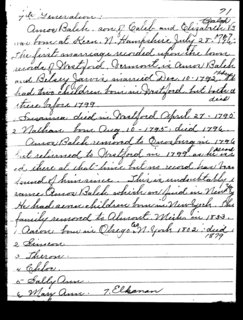 71
7th Generation:
Amos Balch. son of Caleb and Elizabeth
was born at Keen, N. Hampshire July 28, 1767.
The first marriage recorded upon the town
records of Westford, Vermont, is Amos Balch
and Betsey Jarvis married Dec. 10 - 1792. They
had two children born in Westford, but both died
there before 1799.
Susannah died in Westford April 27 - 1795
2 Nathan born Aug. 10 - 1795. died 1796.
Amos Balch removed to Onondaga in 1796
but returned to Westford in 1799, as he
at there at that time but no record was
found of him since. This is undoubtedly
same Amos Balch which we find in New
He had seven children born in New York. The
family removed to Almont, Mich. in 1833.
Aaron born in Otsego Co. N. York 1802. died 1879
2 Simeon
3 Theron
4 Chloe.
5 Sally Ann
6 Mary Ann. 7. Elkanan